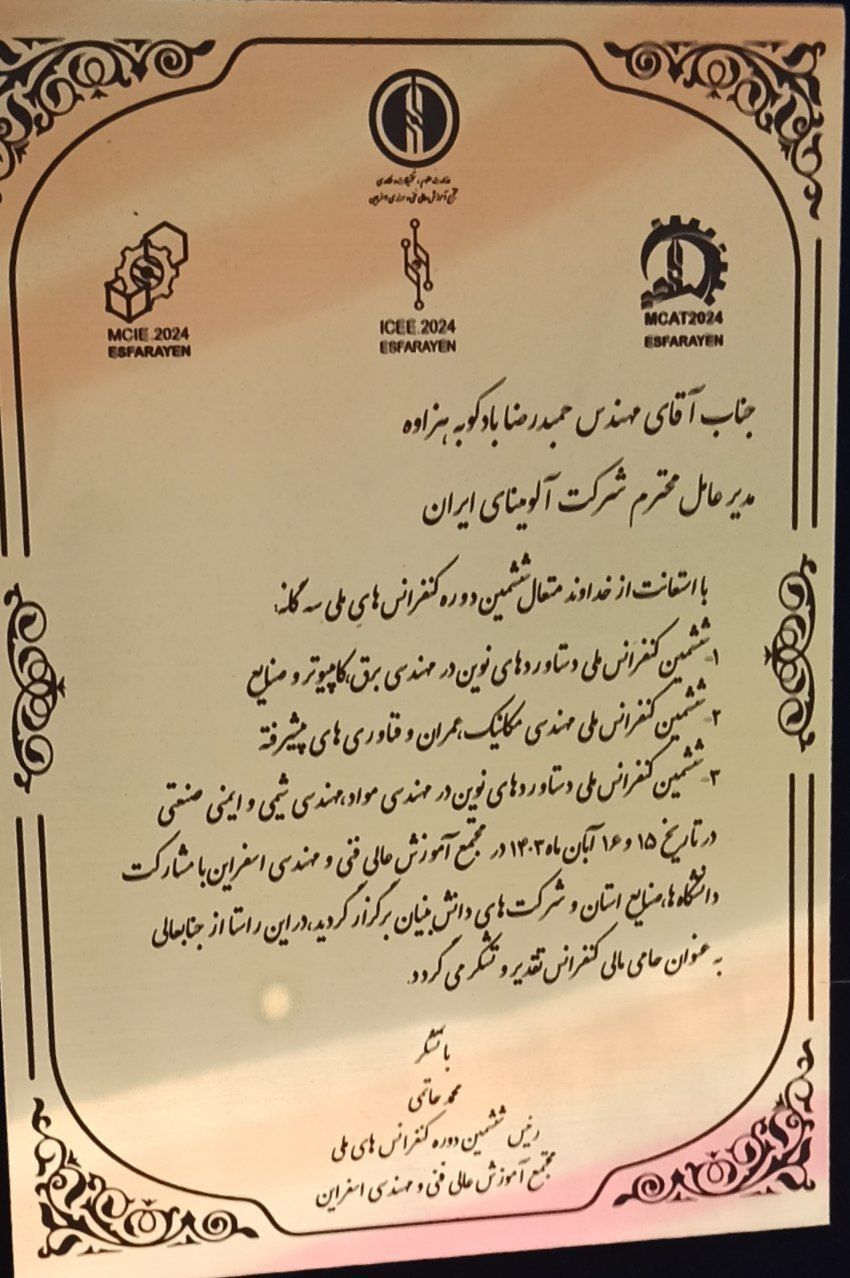 وزارت علوم، تحقیقات و فناوری
مجتمع آموزش عالی فنی و مهندسی اسفراین
MCIE.2024
ESFARAYEN
ICEE.2024
ESFARAYEN
MCAT2024
ESFARAYEN
جناب آقای مهندس حمیدرضا بادکوبه هزاوه
مدیر عامل محترم شرکت آلومینای ایران
با استعانت از خداوند متعال ششمین دوره کنفرانس های ملی سه گانه:
۱- ششمین کنفرانس ملی دستاوردهای نوین در مهندسی برق، کامپیوتر و صنایع
۲- ششمین کنفرانس ملی مهندسی مکانیک، عمران و فناوری های پیشرفته
۳- ششمین کنفرانس ملی دستاوردهای نوین در مهندسی مواد، مهندسی شیمی و ایمنی صنعتی
در تاریخ ۱۵ و ۱۶ آبان ماه ۱۴۰۳ در مجتمع آموزش عالی فنی و مهندسی اسفراین با مشارکت
دانشگاه ها، صنایع استان و شرکت های دانش بنیان برگزار گردید، در این راستا از جنابعالی
به عنوان حامی مالی کنفرانس تقدیر و تشکر می گردد.
با تشکر
محمد حاتمی
رئیس ششمین دوره کنفرانس های ملی
مجتمع آموزش عالی فنی و مهندسی اسفراین